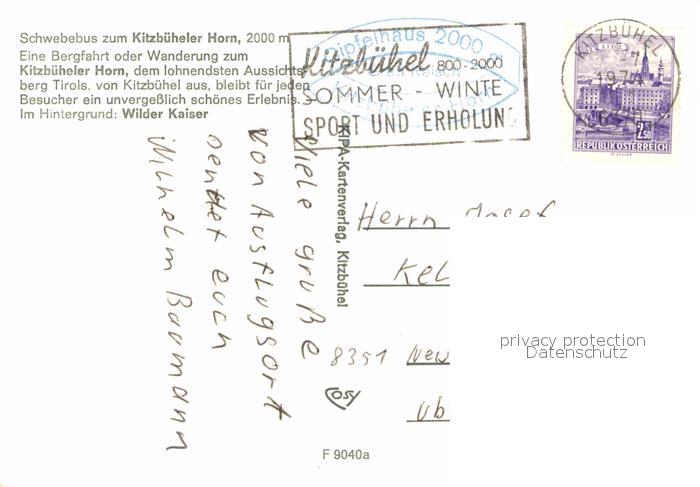 Schwebebus zum Kitzbüheler Horn, 2000 m
Eine Bergfahrt oder Wanderung zum
Kitzbüheler Horn, dem lohnendsten Aussichts-
berg Tirols, von Kitzbühel aus, bleibt für jeden
Besucher ein unvergeßlich schönes Erlebnis.
Im Hintergrund: Wilder Kaiser
Gipfelhaus 2000 m
Kitzbühel 800-2000
SOMMER - WINTE
SPORT UND ERHOLUNG
KITZBÜHEL
LINZ
2.50
REPUBLIK ÖSTERREICH
Viele grüße
von Ausflugsort
sendet euch
Wilhelm Baumann
KIPA-Kartenverlag, Kitzbühel
Herrn Josef
Kel
8351 New
ub
privacy protection
Datenschutz
COSY
F 9040a